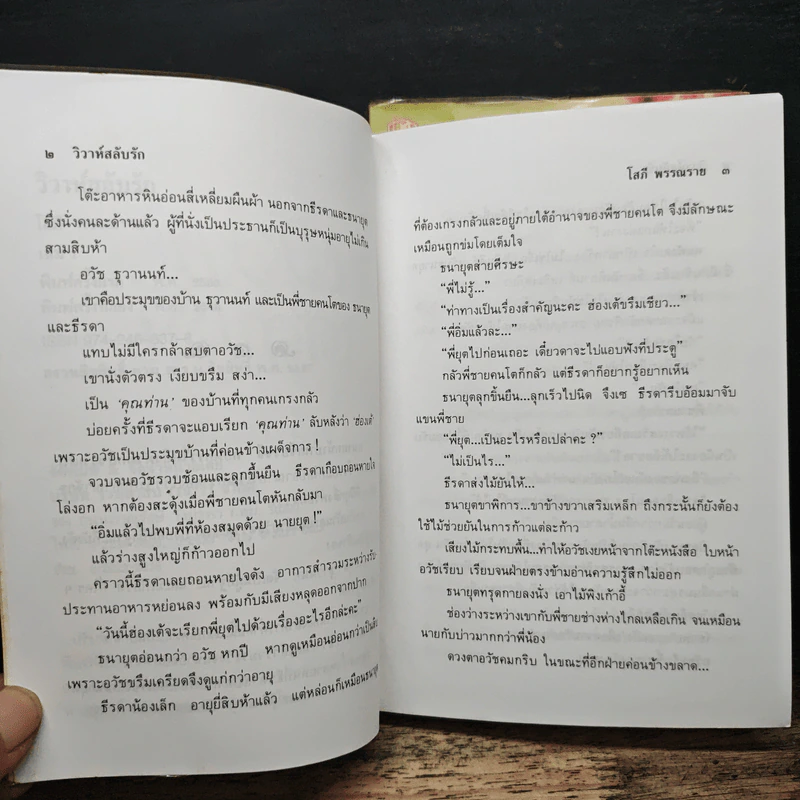 ๒ วิวาห์สลับรัก
โต๊ะอาหารหินอ่อนสี่เหลี่ยมผืนผ้า นอกจากธีรดาและธนายุต
ซึ่งนั่งคนละด้านแล้ว ผู้ที่นั่งเป็นประธานก็เป็นบุรุษหนุ่มอายุไม่เกิน
สามสิบห้า
อวัช ธุวานนท์...
เขาคือประมุขของบ้าน ธุวานนท์ และเป็นพี่ชายคนโตของ ธนายุต
และธีรดา
แทบไม่มีใครกล้าสบตาอวัช...
เขานั่งตัวตรง เงียบขรึม สง่า...
เป็น ‘คุณท่าน’ ของบ้านที่ทุกคนเกรงกลัว
บ่อยครั้งที่ธีรดาจะแอบเรียก ‘คุณท่าน’ ลับหลังว่า ‘ฮ่องเต้’
เพราะอวัชเป็นประมุขบ้านที่ค่อนข้างเผด็จการ !
จวบจนอวัชรวบช้อนและลุกขึ้นยืน ธีรดาเกือบถอนหายใจ
โล่งอก หากต้องสะดุ้งเมื่อพี่ชายคนโตหันกลับมา
“อิ่มแล้วไปพบพี่ที่ห้องสมุดด้วย นายยุต !”
แล้วร่างสูงใหญ่ก็ก้าวออกไป
คราวนี้ธีรดาเลยถอนหายใจดัง อาการสำรวมระหว่างรับ
ประทานอาหารหย่อนลง พร้อมกับมีเสียงหลุดออกจากปาก
“วันนี้ฮ่องเต้จะเรียกพี่ยุตไปด้วยเรื่องอะไรอีกล่ะคะ”
ธนายุตอ่อนกว่า อวัช หกปี หากดูเหมือนอ่อนกว่าเป็นสิบ
เพราะอวัชขรึมเครียดจึงดูแก่กว่าอายุ
ธีรดาน้องเล็ก อายุยี่สิบห้าแล้ว แต่หล่อนก็เหมือนธนายุต
โสภี พรรณราย ๓
ที่ต้องเกรงกลัวและอยู่ภายใต้อำนาจของพี่ชายคนโต จึงมีลักษณะ
เหมือนถูกข่มโดยเต็มใจ
ธนายุตส่ายศีรษะ
“พี่ไม่รู้...”
“ท่าทางเป็นเรื่องสำคัญนะคะ ฮ่องเต้ขรึมเชียว...”
“พี่อิ่มแล้วละ...”
“พี่ยุตไปก่อนเถอะ เดี๋ยวดาจะไปแอบฟังที่ประตู”
กลัวพี่ชายคนโตก็กลัว แต่ธีรดาก็อยากรู้อยากเห็น
ธนายุตลุกขึ้นยืน...ลุกเร็วไปนิด จึงเซ ธีรดารีบอ้อมมาจับ
แขนพี่ชาย
“พี่ยุต...เป็นอะไรหรือเปล่าคะ ?”
“ไม่เป็นไร...”
ธีรดาส่งไม้ยันให้...
ธนายุตขาพิการ...ขาข้างขวาเสริมเหล็ก ถึงกระนั้นก็ยังต้อง
ใช้ไม้ช่วยยันในการก้าวแต่ละก้าว
เสียงไม้กระทบพื้น...ทำให้อวัชเงยหน้าจากโต๊ะหนังสือ ใบหน้า
อวัชเรียบ เรียบจนฝ่ายตรงข้ามอ่านความรู้สึกไม่ออก
ธนายุตทรุดกายลงนั่ง เอาไม้พิงเก้าอี้
ช่องว่างระหว่างเขากับพี่ชายช่างห่างไกลเหลือเกิน จนเหมือน
นายกับบ่าวมากกว่าพี่น้อง
ดวงตาอวัชคมกริบ ในขณะที่อีกฝ่ายค่อนข้างขลาด...